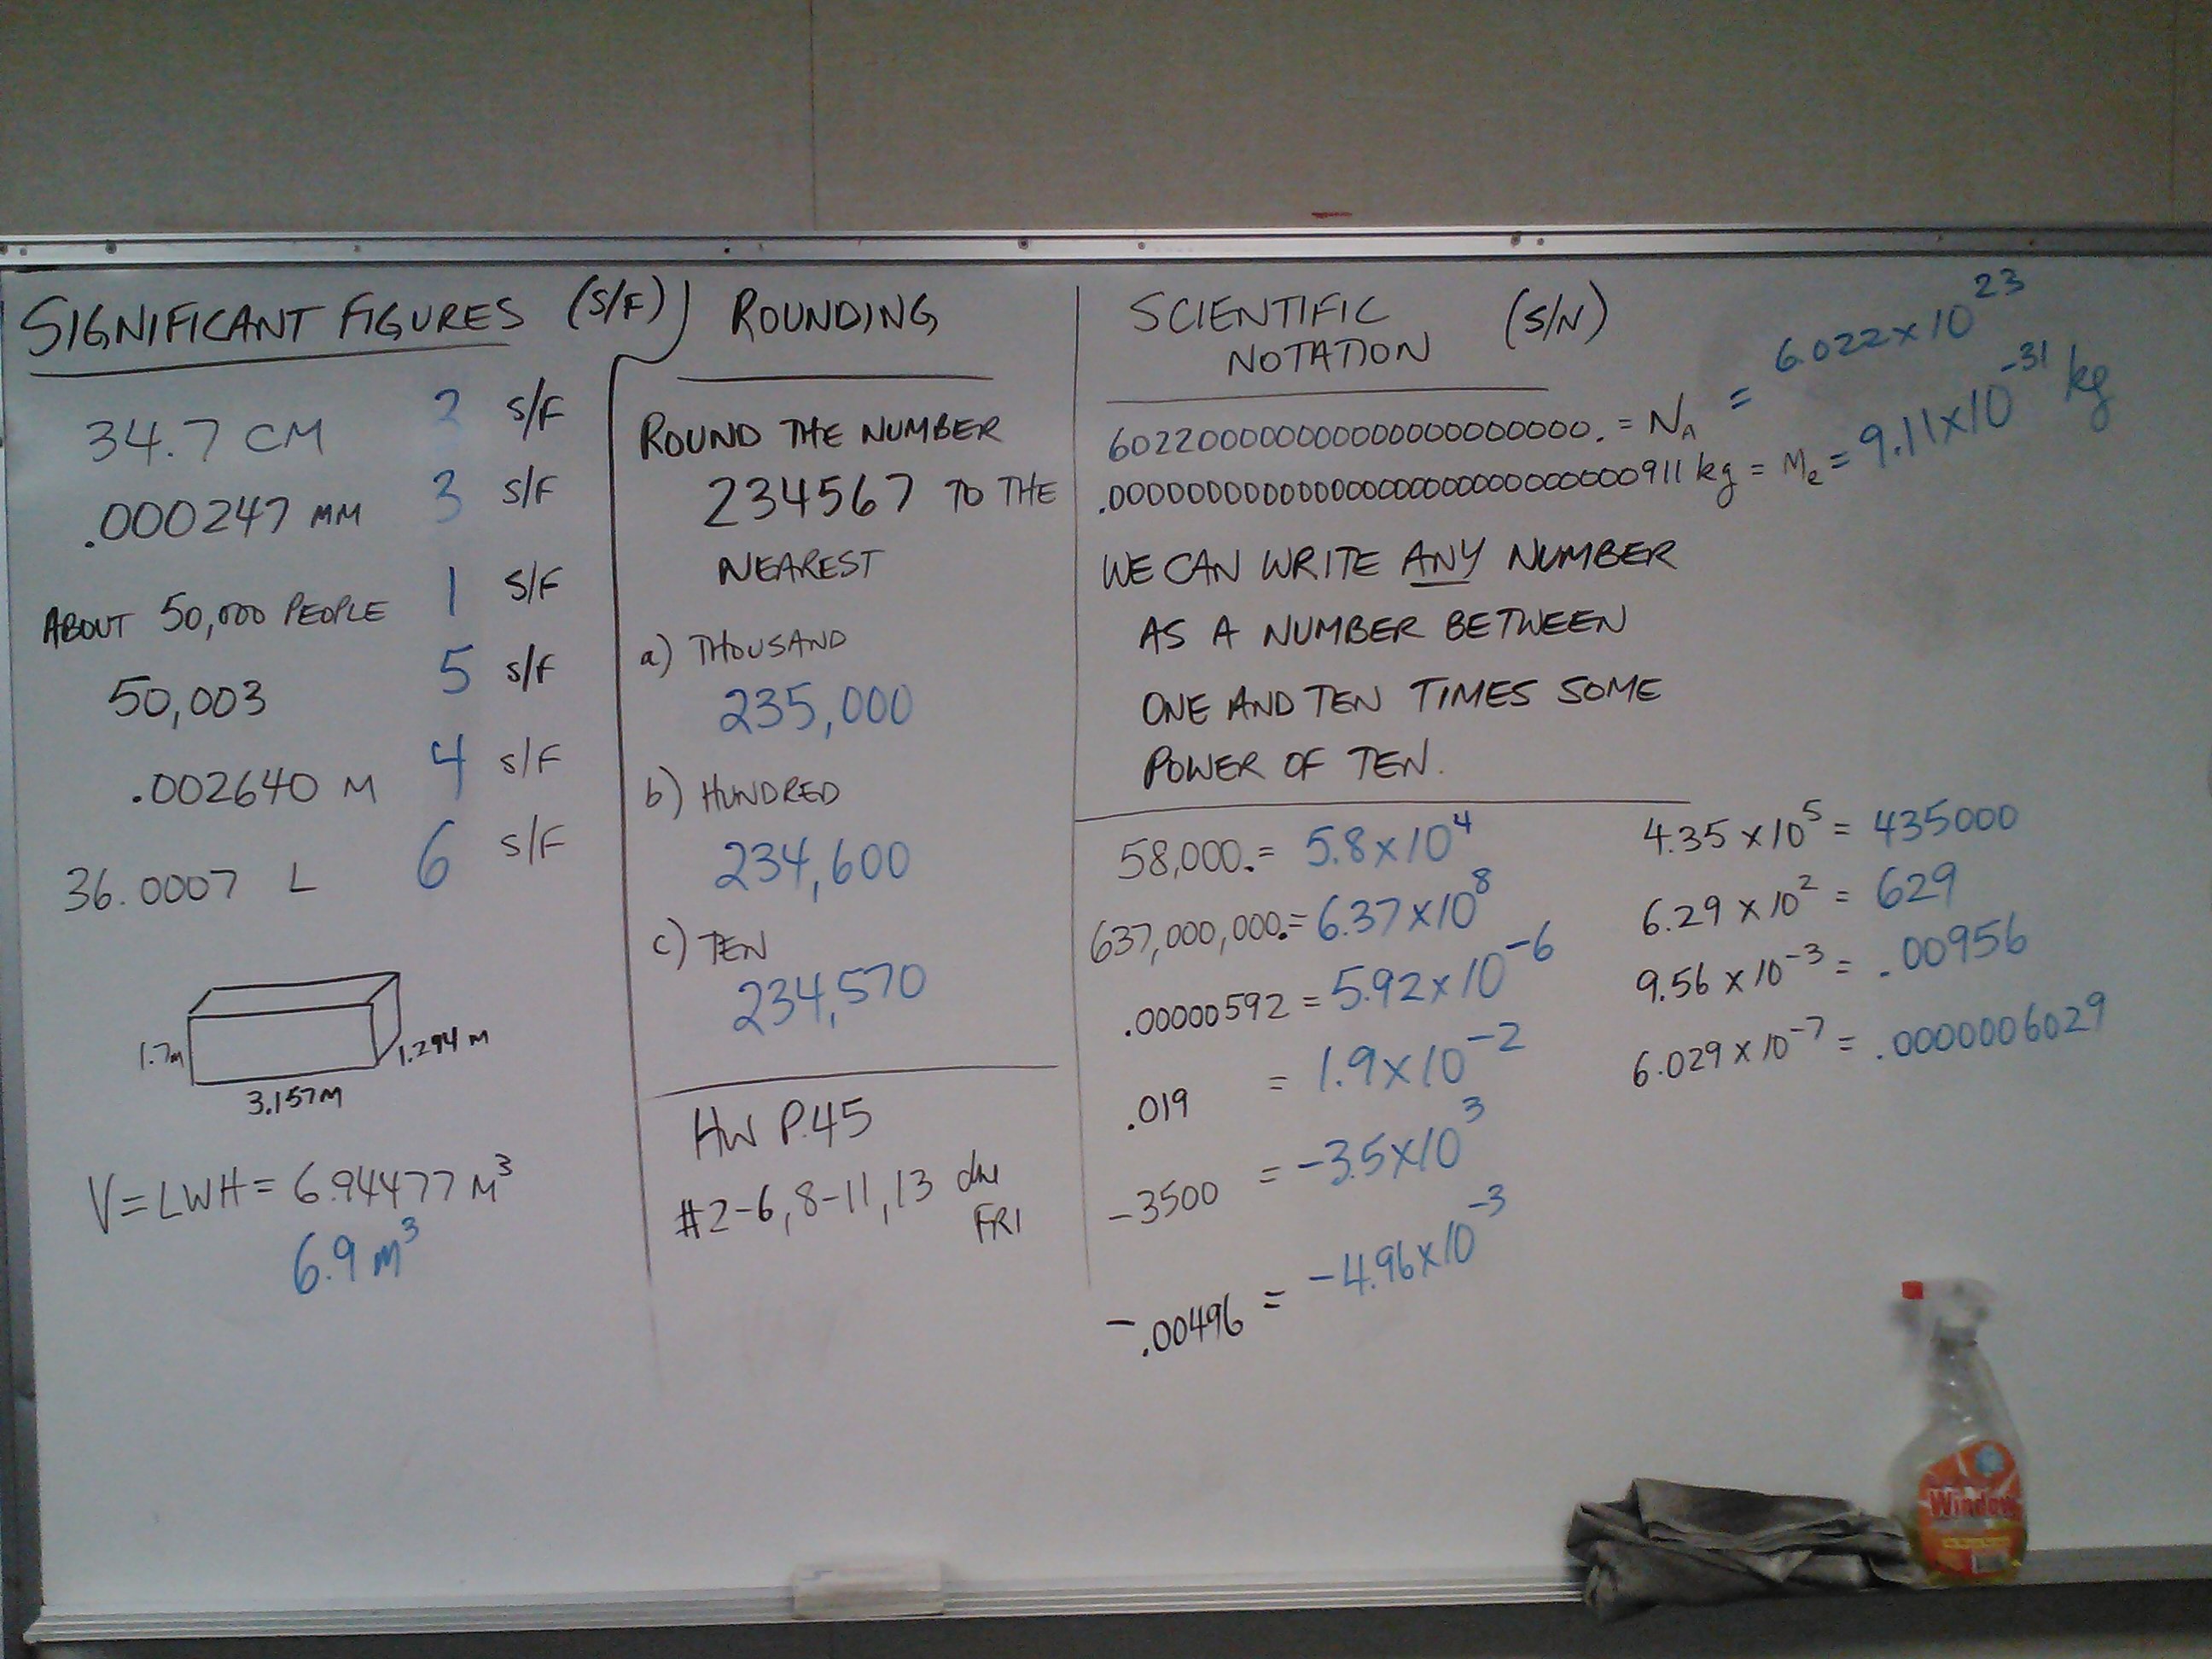 SIGNIFICANT FIGURES (S/F)
34.7 CM 2 S/F
.000247 MM 3 S/F
ABOUT 50,000 PEOPLE 1 S/F
50,003 5 S/F
.002640 M 4 S/F
36.0007 L 6 S/F
1.7m
1.294 M
3.157M
V=LWH= 6.94477 M³
6.9 m³
ROUNDING
ROUND THE NUMBER
234567 TO THE
NEAREST
a) THOUSAND
235,000
b) HUNDRED
234,600
c) TEN
234,570
HW P.45
#2-6, 8-11, 13 due
FRI
SCIENTIFIC
NOTATION (S/N)
602200000000000000000000. = Nₐ = 6.022 x 10²³
.000000000000000000000000000000911 kg = Mₑ = 9.11 x 10⁻³¹ kg
WE CAN WRITE ANY NUMBER
AS A NUMBER BETWEEN
ONE AND TEN TIMES SOME
POWER OF TEN.
58,000. = 5.8 x 10⁴
637,000,000. = 6.37 x 10⁸
.00000592 = 5.92 x 10⁻⁶
.019 = 1.9 x 10⁻²
-3500 = -3.5 x 10³
-.00496 = -4.96 x 10⁻³
4.35 x 10⁵ = 435000
6.29 x 10² = 629
9.56 x 10⁻³ = .00956
6.029 x 10⁻⁷ = .0000006029
Windex